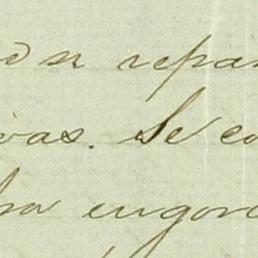 se repa
vas. Se co
ha engor